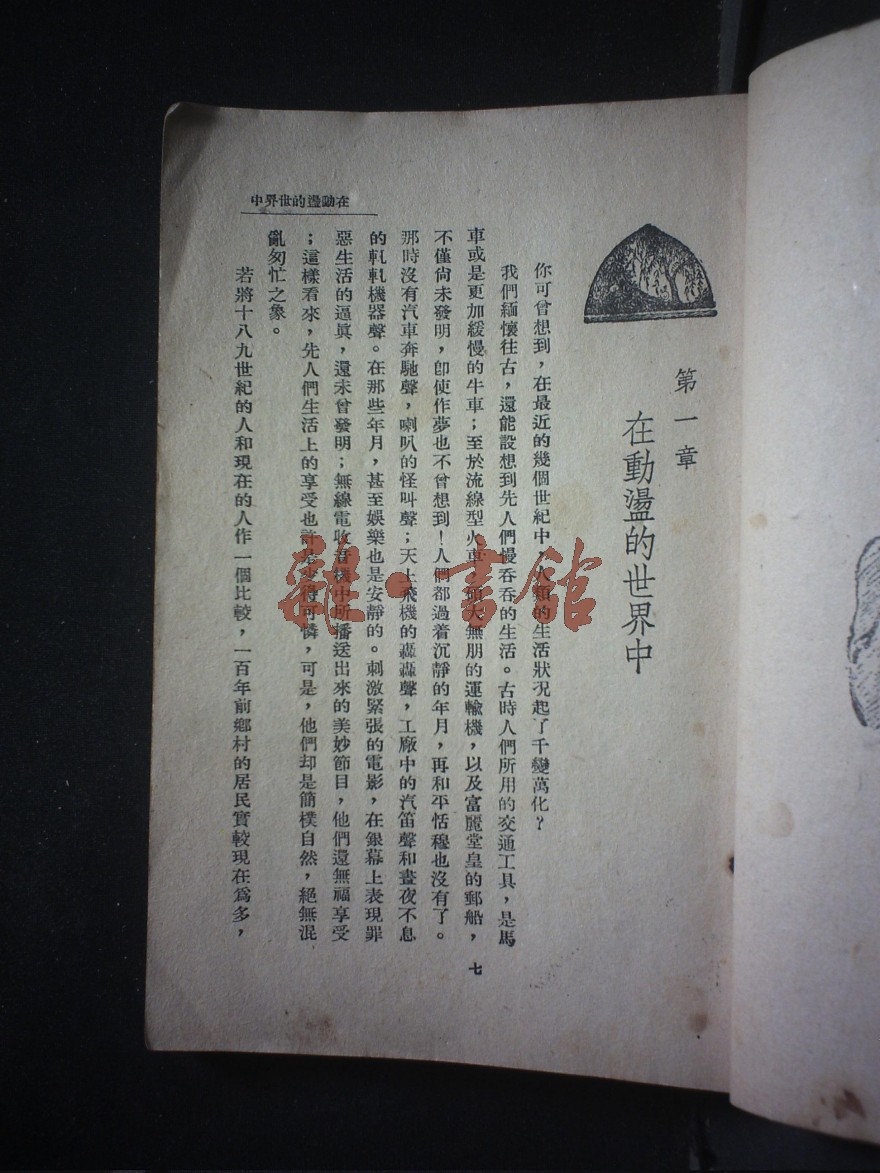 在動盪的世界中
第一章
在動盪的世界中
你可曾想到，在最近的幾個世紀中，人類的生活狀况起了千變萬化？
我們緬懷往古，還能設想到先人們慢吞吞的生活。古時人們所用的交通工具，是馬
車或是更加緩慢的牛車；至於流線型火車，碩大無朋的運輸機，以及富麗堂皇的郵船，
不僅尙未發明，卽使作夢也不曾想到！人們都過着沉靜的年月，再和平恬穆也沒有了。
那時沒有汽車奔馳聲，喇叭的怪叫聲；天上飛機的轟轟聲，工廠中的汽笛聲和晝夜不息
的軋軋機器聲。在那些年月，甚至娛樂也是安靜的。刺激緊張的電影，在銀幕上表現罪
惡生活的逼眞，還未曾發明；無線電收音機中所播送出來的美妙節目，他們還無福享受
；這樣看來，先人們生活上的享受也許是少得可憐，可是，他們却是簡樸自然，絕無混
亂匆忙之象。
若將十八九世紀的人和現在的人作一個比較，一百年前鄉村的居民實較現在爲多，
七
雜·書館